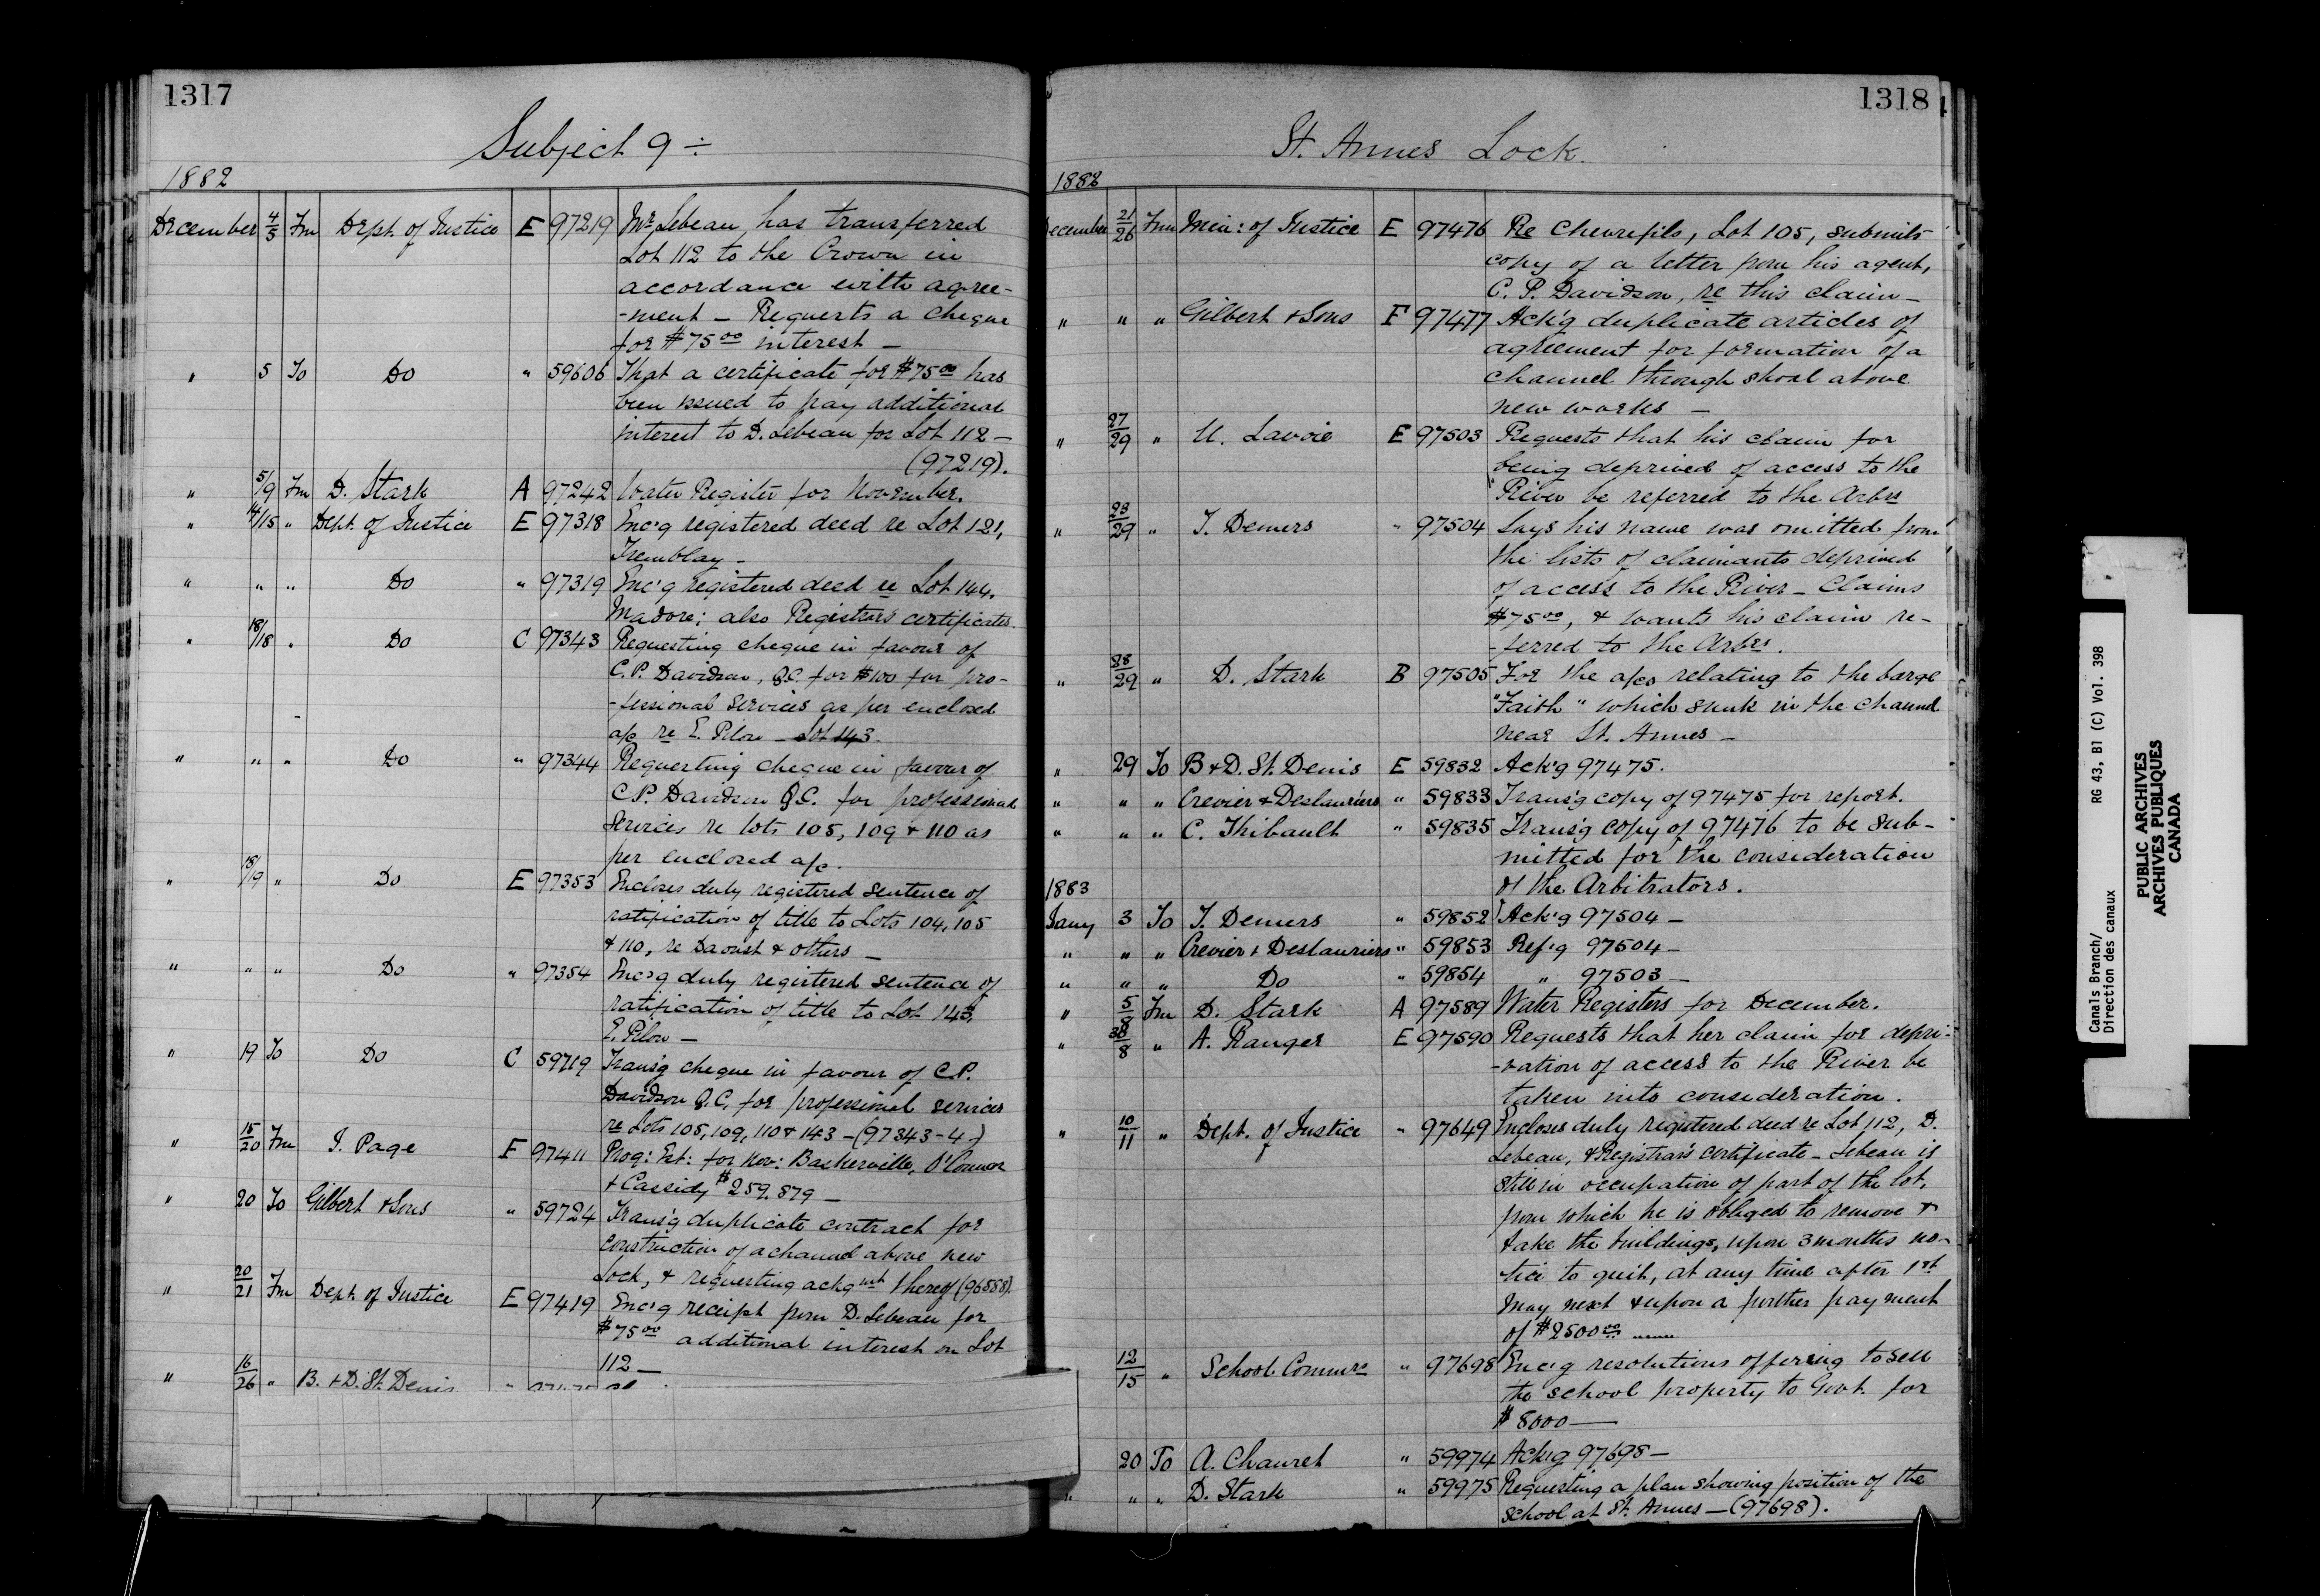 1317
Subject 9 ÷
1882
December 4/5 Fm Dept. of Justice E 97219 Mr. Lebeau, has transferred
Lot 112 to the Crown in
accordance with agree-
-ment - Requests a cheque
for $75.00 interest -
" 5 To Do " 59606 That a certificate for $75.00 has
been issued to pay additional
interest to D. Lebeau for Lot 112 -
(97219).
" 5/9 Fm D. Stark A 97242 Water Register for November.
" 14/15 " Dept. of Justice E 97318 Enc'g registered deed re Lot 121,
Tremblay -
" " " Do " 97319 Enc'g registered deed re Lot 144.
Madore; also Registrar's certificates.
" 18/18 " Do C 97343 Requesting cheque in favour of
C.P. Davidson, Q.C. for $100 for pro-
-fessional services as per enclosed
a/c re E. Pilon - Lot 143.
" " " Do " 97344 Requesting cheque in favour of
C.P. Davidson Q.C. for professional
services re lots 105, 109 & 110 as
per enclosed a/c.
" 18/19 " Do E 97353 Encloses duly registered sentence of
ratification of title to Lots 104, 105
& 110, re Daoust & others -
" " " Do " 97354 Enc'g duly registered sentence of
ratification of title to Lot 143,
E. Pilon -
" 19 To Do C 59719 Trans'g cheque in favour of C.P.
Davidson Q.C. for professional services
re Lots 105, 109, 110 & 143 - (97343-4-)
" 15/20 Fm J. Page F 97411 Prog: Est: for Nov: Baskerville, O'Connor
& Cassidy $259.879 -
" 20 To Gilbert & Sons " 59724 Trans'g duplicate contract for
construction of a channel above new
Lock, & requesting ackgmt thereof (96558).
" 20/21 Fm Dept. of Justice E 97419 Enc'g receipt from D. Lebeau for
$75.00 additional interest on Lot
112 -
" 16/26 " B. & D. St. Denis "
1318
St. Annes Lock.
1882
December 21/26 Fm Min: of Justice E 97476 Re Chevrefils, Lot 105, submits
copy of a letter from his agent,
C. P. Davidson, re this claim -
" " " Gilbert & Sons F 97477 Ack'g duplicate articles of
agreement for formation of a
channel through shoal above
new works -
" 27/29 " U. Lavoie E 97503 Requests that his claim for
being deprived of access to the
River be referred to the Arbrs
" 28/29 " T. Demers " 97504 Says his name was omitted from
the lists of claimants deprived
of access to the River - Claims
$75.00, & wants his claim re-
-ferred to the Arbrs.
" 28/29 " D. Stark B 97505 For the a/cs relating to the barge
"Faith" which sunk in the channel
near St. Annes -
" 29 To B & D. St. Denis E 59832 Ack'g 97475.
" " " Crevier & Deslauriers " 59833 Trans'g copy of 97475 for report.
" " " C. Thibault " 59835 Trans'g copy of 97476 to be sub-
mitted for the consideration
of the Arbitrators.
1883
Jany 3 To T. Demers " 59852 Ack'g 97504 -
" " " Crevier & Deslauriers " 59853 Ref'g 97504 -
" " " Do " 59854 " 97503 -
" 5/8 Fm D. Stark A 97589 Water Registers for December.
" 30/8 " A. Ranger E 97590 Requests that her claim for depri-
-vation of access to the River be
taken into consideration.
" 10/11 " Dept. of Justice " 97649 Encloses duly registered deed re Lot 112, D.
Lebeau, & Registrar's certificate - Lebeau is
still in occupation of part of the lot,
from which he is obliged to remove &
take the buildings, upon 3 months no-
tice to quit, at any time after 1st
May next & upon a further payment
of $2500.00
12/15 " School Commrs " 97698 Enc'g resolutions offering to sell
the school property to Govt. for
$8000 -
20 To A. Chauret " 59974 Ack'g 97698 -
" " " D. Stark " 59975 Requesting a plan showing position of the
school at St. Annes - (97698).
Canals Branch/ RG 43, B1 (C) Vol. 398
Direction des canaux
PUBLIC ARCHIVES
ARCHIVES PUBLIQUES
CANADA